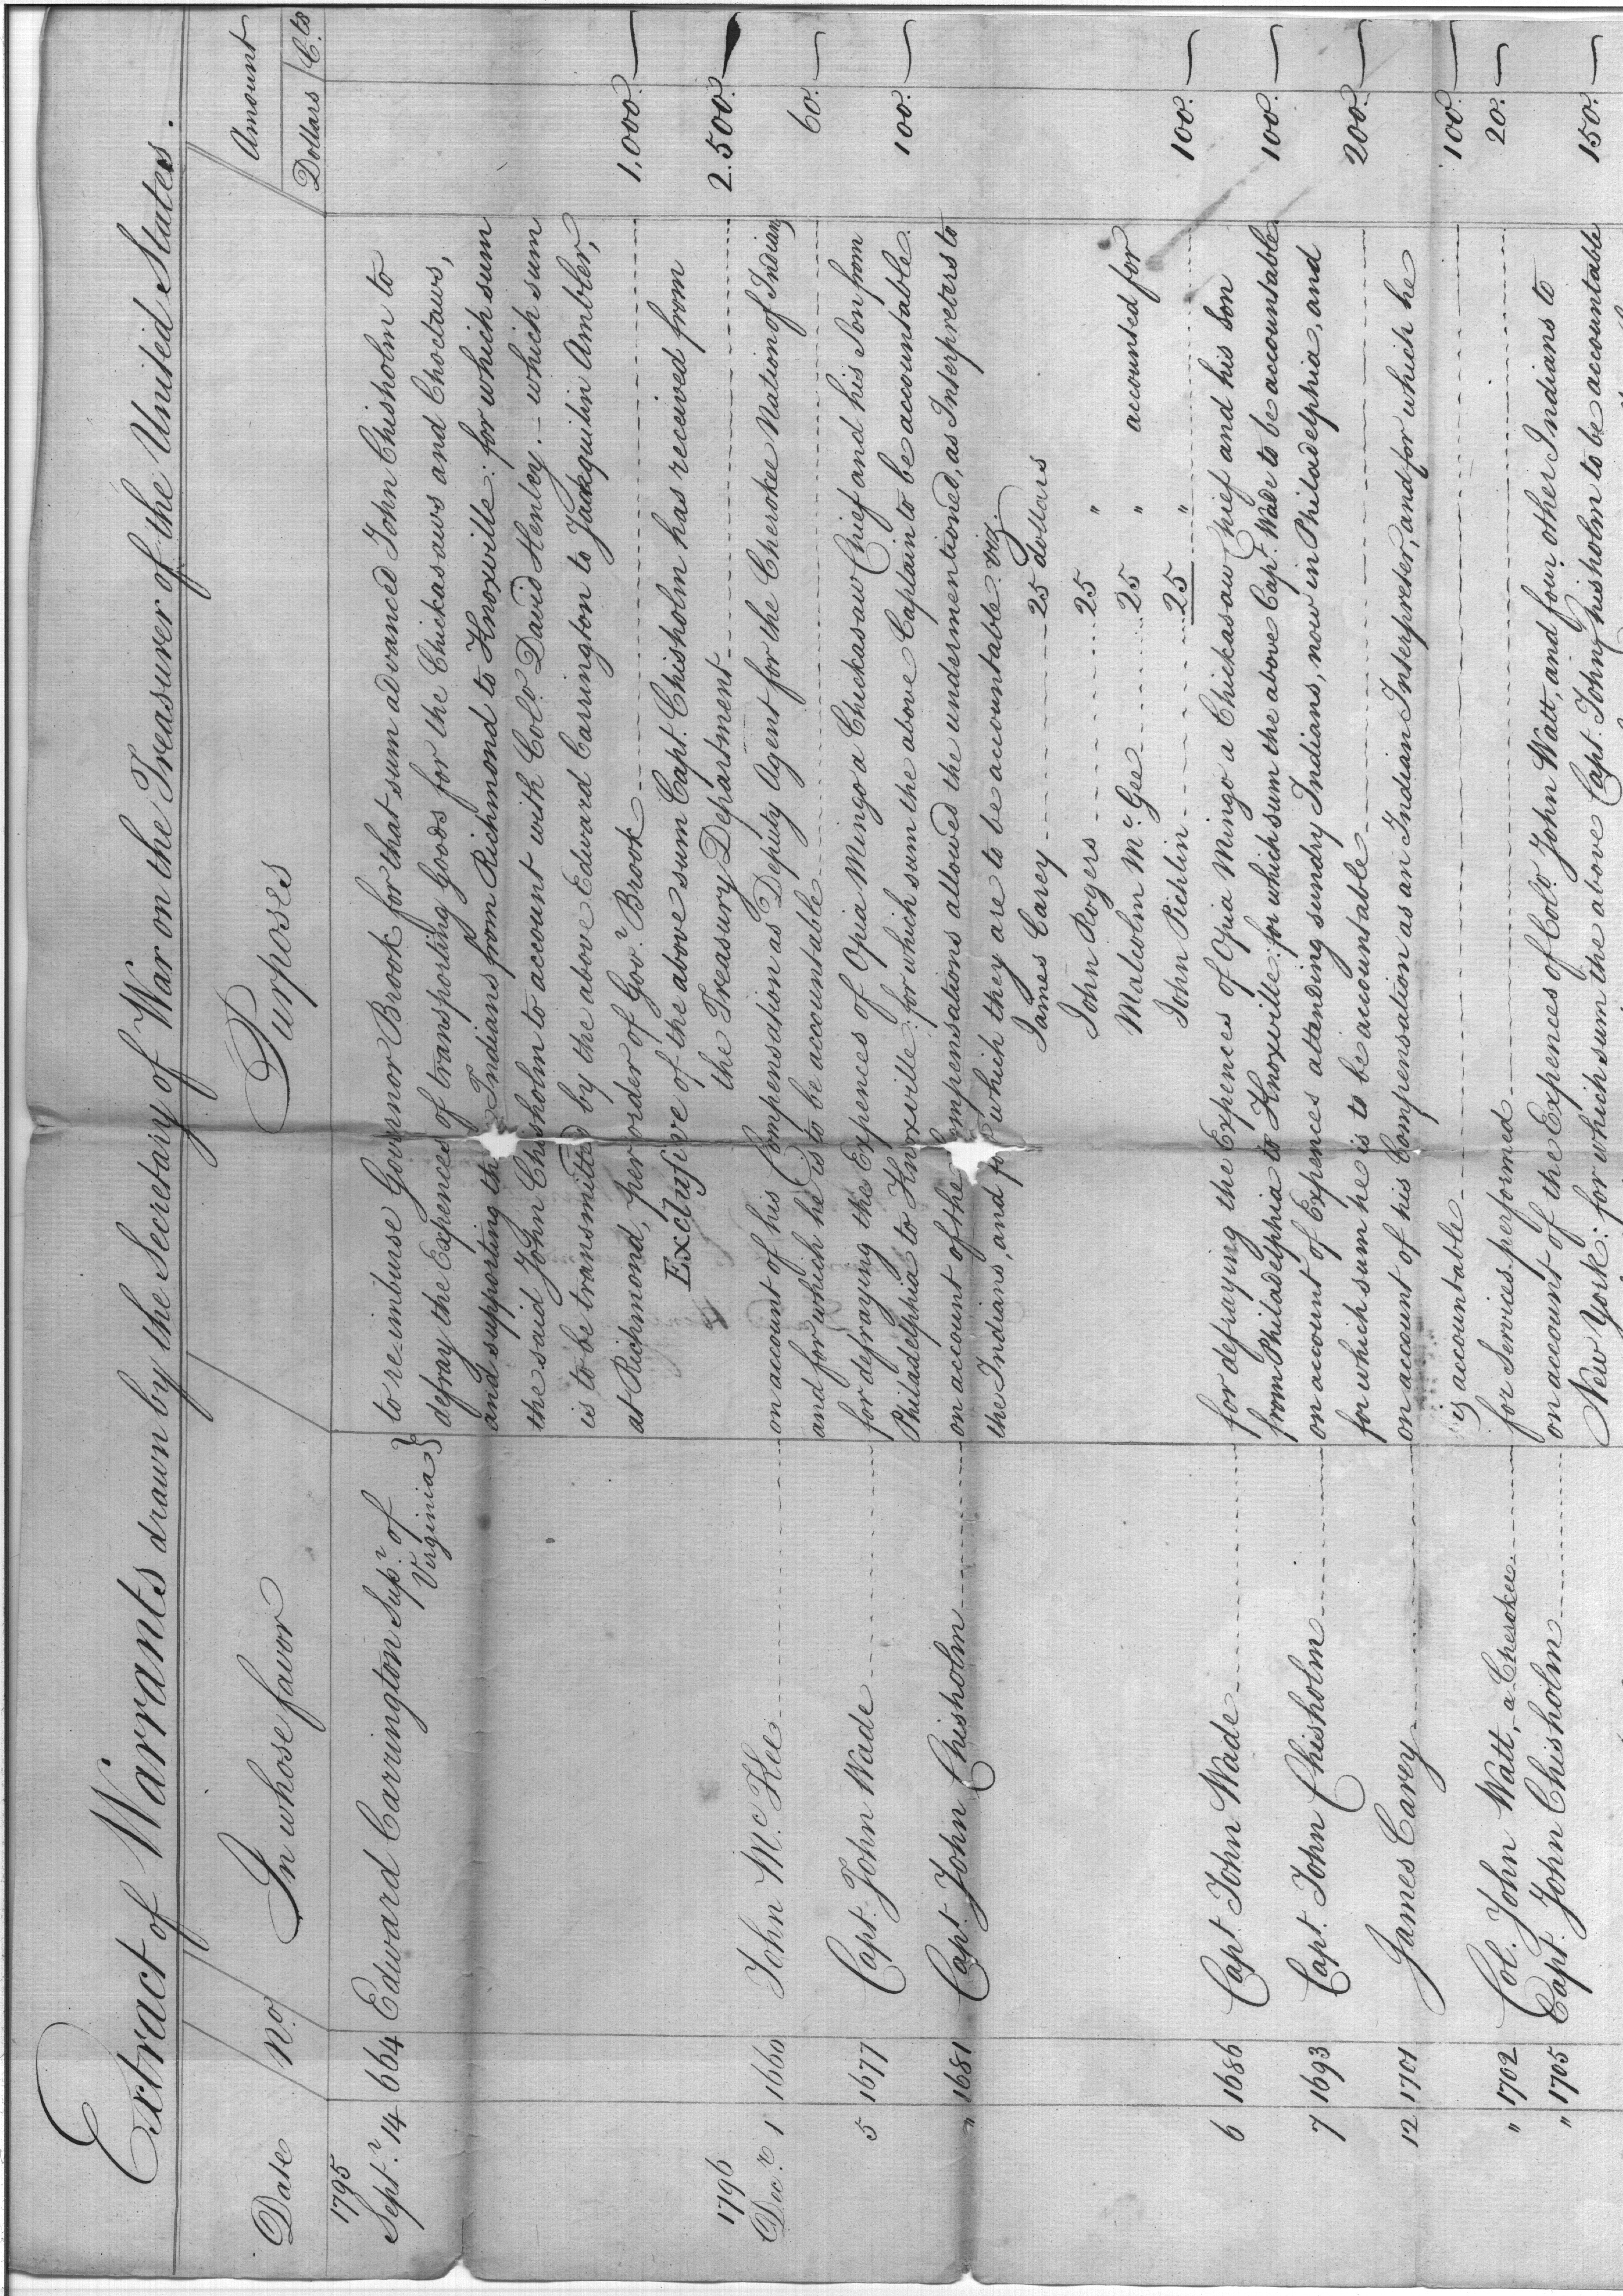 Extract of Warrants drawn by the Secretary of War on the Treasurer of the United States.
Date No. In whose favor Purposes Amount
Dollars Cts
1795
Septr. 14 664 Edward Carrington Supr. of Virginia } to re-imburse Governor Brook for that sum advanced John Chisholm to
defray the Expences of transporting Goods for the Chickasaws and Choctaws,
and supporting the Indians from Richmond to Knoxville: for which sum
the said John Chisholm to account with Colo. David Henley. - which sum
is to be transmitted by the above Edward Carrington to Jacquilin Ambler,
at Richmond, per order of Govr. Brook 1,000. —
Exclusive of the above sum Capt. Chisholm has received from
the Treasury Department 2.500. —
1796
Decr. 1 1660 John McKee on account of his Compensation as Deputy Agent for the Cherokee Nation of Indians
and for which he is to be accountable 60. —
5 1677 Capt. John Wade for defraying the Expences of Opia Mingo a Chickasaw Chief and his Son from
Philadelphia to Knoxville: for which sum the above Captain to be accountable. 100. —
" 1681 Capt. John Chisholm on account of the Compensations allowed the undermentioned, as Interpreters to
the Indians, and for which they are to be accountable. viz.
James Carey 25 dollars
John Rogers 25 "
Malcolm McGee 25 " accounted for
John Pichlin 25 " 100. —
6 1686 Capt. John Wade for defraying the Expences of Opia Mingo a Chickasaw Chief and his Son
from Philadelphia to Knoxville: for which sum the above Capt. Wade to be accountable 100. —
7 1693 Capt. John Chisholm on account of Expences attending sundry Indians, now in Philadelphia, and
for which sum he is to be accountable 200. —
12 1701 James Carey on account of his Compensation as an Indian Interpreter, and for which he
is accountable 100. —
" 1702 Col. John Watt, a Cherokee for Services performed 20. —
" 1705 Capt. John Chisholm on account of the Expences of Colo. John Watt, and four other Indians to
New York: for which sum the above Capt. John Chisholm to be accountable 150. —